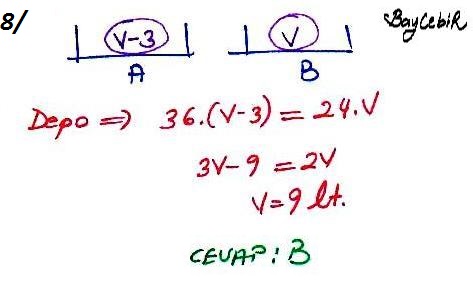 8/
BayCebiR
V-3
V
A
B
Depo => 36.(V-3) = 24.V
3V-9 = 2V
V=9 lt.
CEVAP: B